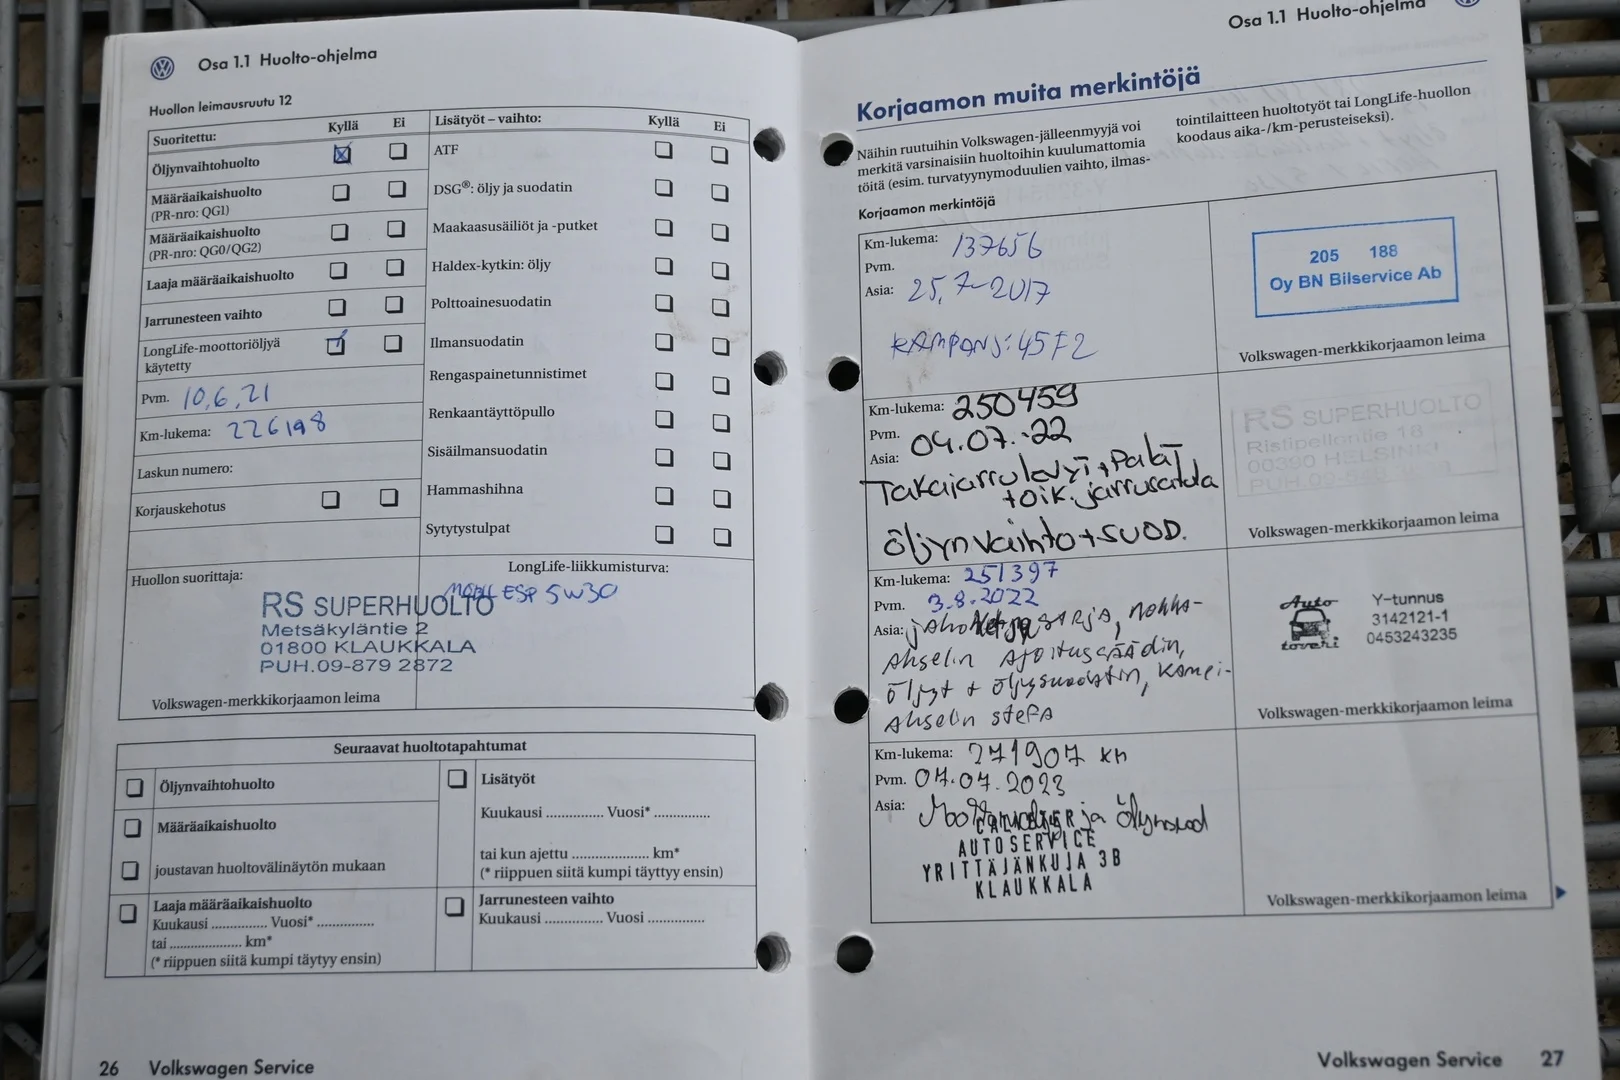 Osa 1.1 Huolto-ohjelma
Huollon leimausruutu 12
Suoritettu: Kyllä Ei
Öljynvaihtohuolto
Määräaikaishuolto
(PR-nro: QG1)
Määräaikaishuolto
(PR-nro: QG0/QG2)
Laaja määräaikaishuolto
Jarrunesteen vaihto
LongLife-moottoriöljyä
käytetty
Pvm. 10.6.21
Km-lukema: 226198
Laskun numero:
Korjauskehotus
Lisätyöt – vaihto: Kyllä Ei
ATF
DSG®: öljy ja suodatin
Maakaasusäiliöt ja -putket
Haldex-kytkin: öljy
Polttoainesuodatin
Ilmansuodatin
Rengaspainetunnistimet
Renkaantäyttöpullo
Sisäilmansuodatin
Hammashihna
Sytytystulpat
Huollon suorittaja:
RS SUPERHUOLTO
Metsäkyläntie 2
01800 KLAUKKALA
PUH.09-879 2872
Volkswagen-merkkikorjaamon leima
LongLife-liikkumisturva:
MOBIL ESP 5W30
Seuraavat huoltotapahtumat
Öljynvaihtohuolto
Määräaikaishuolto
joustavan huoltovälinäytön mukaan
Laaja määräaikaishuolto
Kuukausi .............. Vuosi* ..............
tai .................. km*
(* riippuen siitä kumpi täytyy ensin)
Lisätyöt
Kuukausi .............. Vuosi* ..............
tai kun ajettu ................... km*
(* riippuen siitä kumpi täyttyy ensin)
Jarrunesteen vaihto
Kuukausi .............. Vuosi ..............
26 Volkswagen Service
Osa 1.1 Huolto-ohjelma
Korjaamon muita merkintöjä
Näihin ruutuihin Volkswagen-jälleenmyyjä voi
merkitä varsinaisiin huoltoihin kuulumattomia
töitä (esim. turvatyynymoduulien vaihto, ilmas-
tointilaitteen huoltotyöt tai LongLife-huollon
koodaus aika-/km-perusteiseksi).
Korjaamon merkintöjä
Km-lukema: 137656
Pvm.
Asia: 25.7-2017
KAMPANJ: 45F2
205 188
Oy BN Bilservice Ab
Volkswagen-merkkikorjaamon leima
Km-lukema: 250459
Pvm. 04.07.-22
Asia:
Takajarrulevyt + Palat
+ oik. jarrusatula
öljynvaihto + suod.
RS SUPERHUOLTO
Ristipellontie 18
00390 HELSINKI
PUH 09-
Volkswagen-merkkikorjaamon leima
Km-lukema: 251397
Pvm. 3.8.2022
Asia: jakoketjusarja, nokka-
akselin ajoitussäädin,
öljyt + öljysuodatin, kampi-
akselin stefa
Auto
toveri
Y-tunnus
3142121-1
0453243235
Volkswagen-merkkikorjaamon leima
Km-lukema: 271907 km
Pvm. 07.07.2023
Asia: ja öljynsuod
AUTOSERVICE
YRITTÄJÄNKUJA 3B
KLAUKKALA
Volkswagen-merkkikorjaamon leima
Volkswagen Service 27